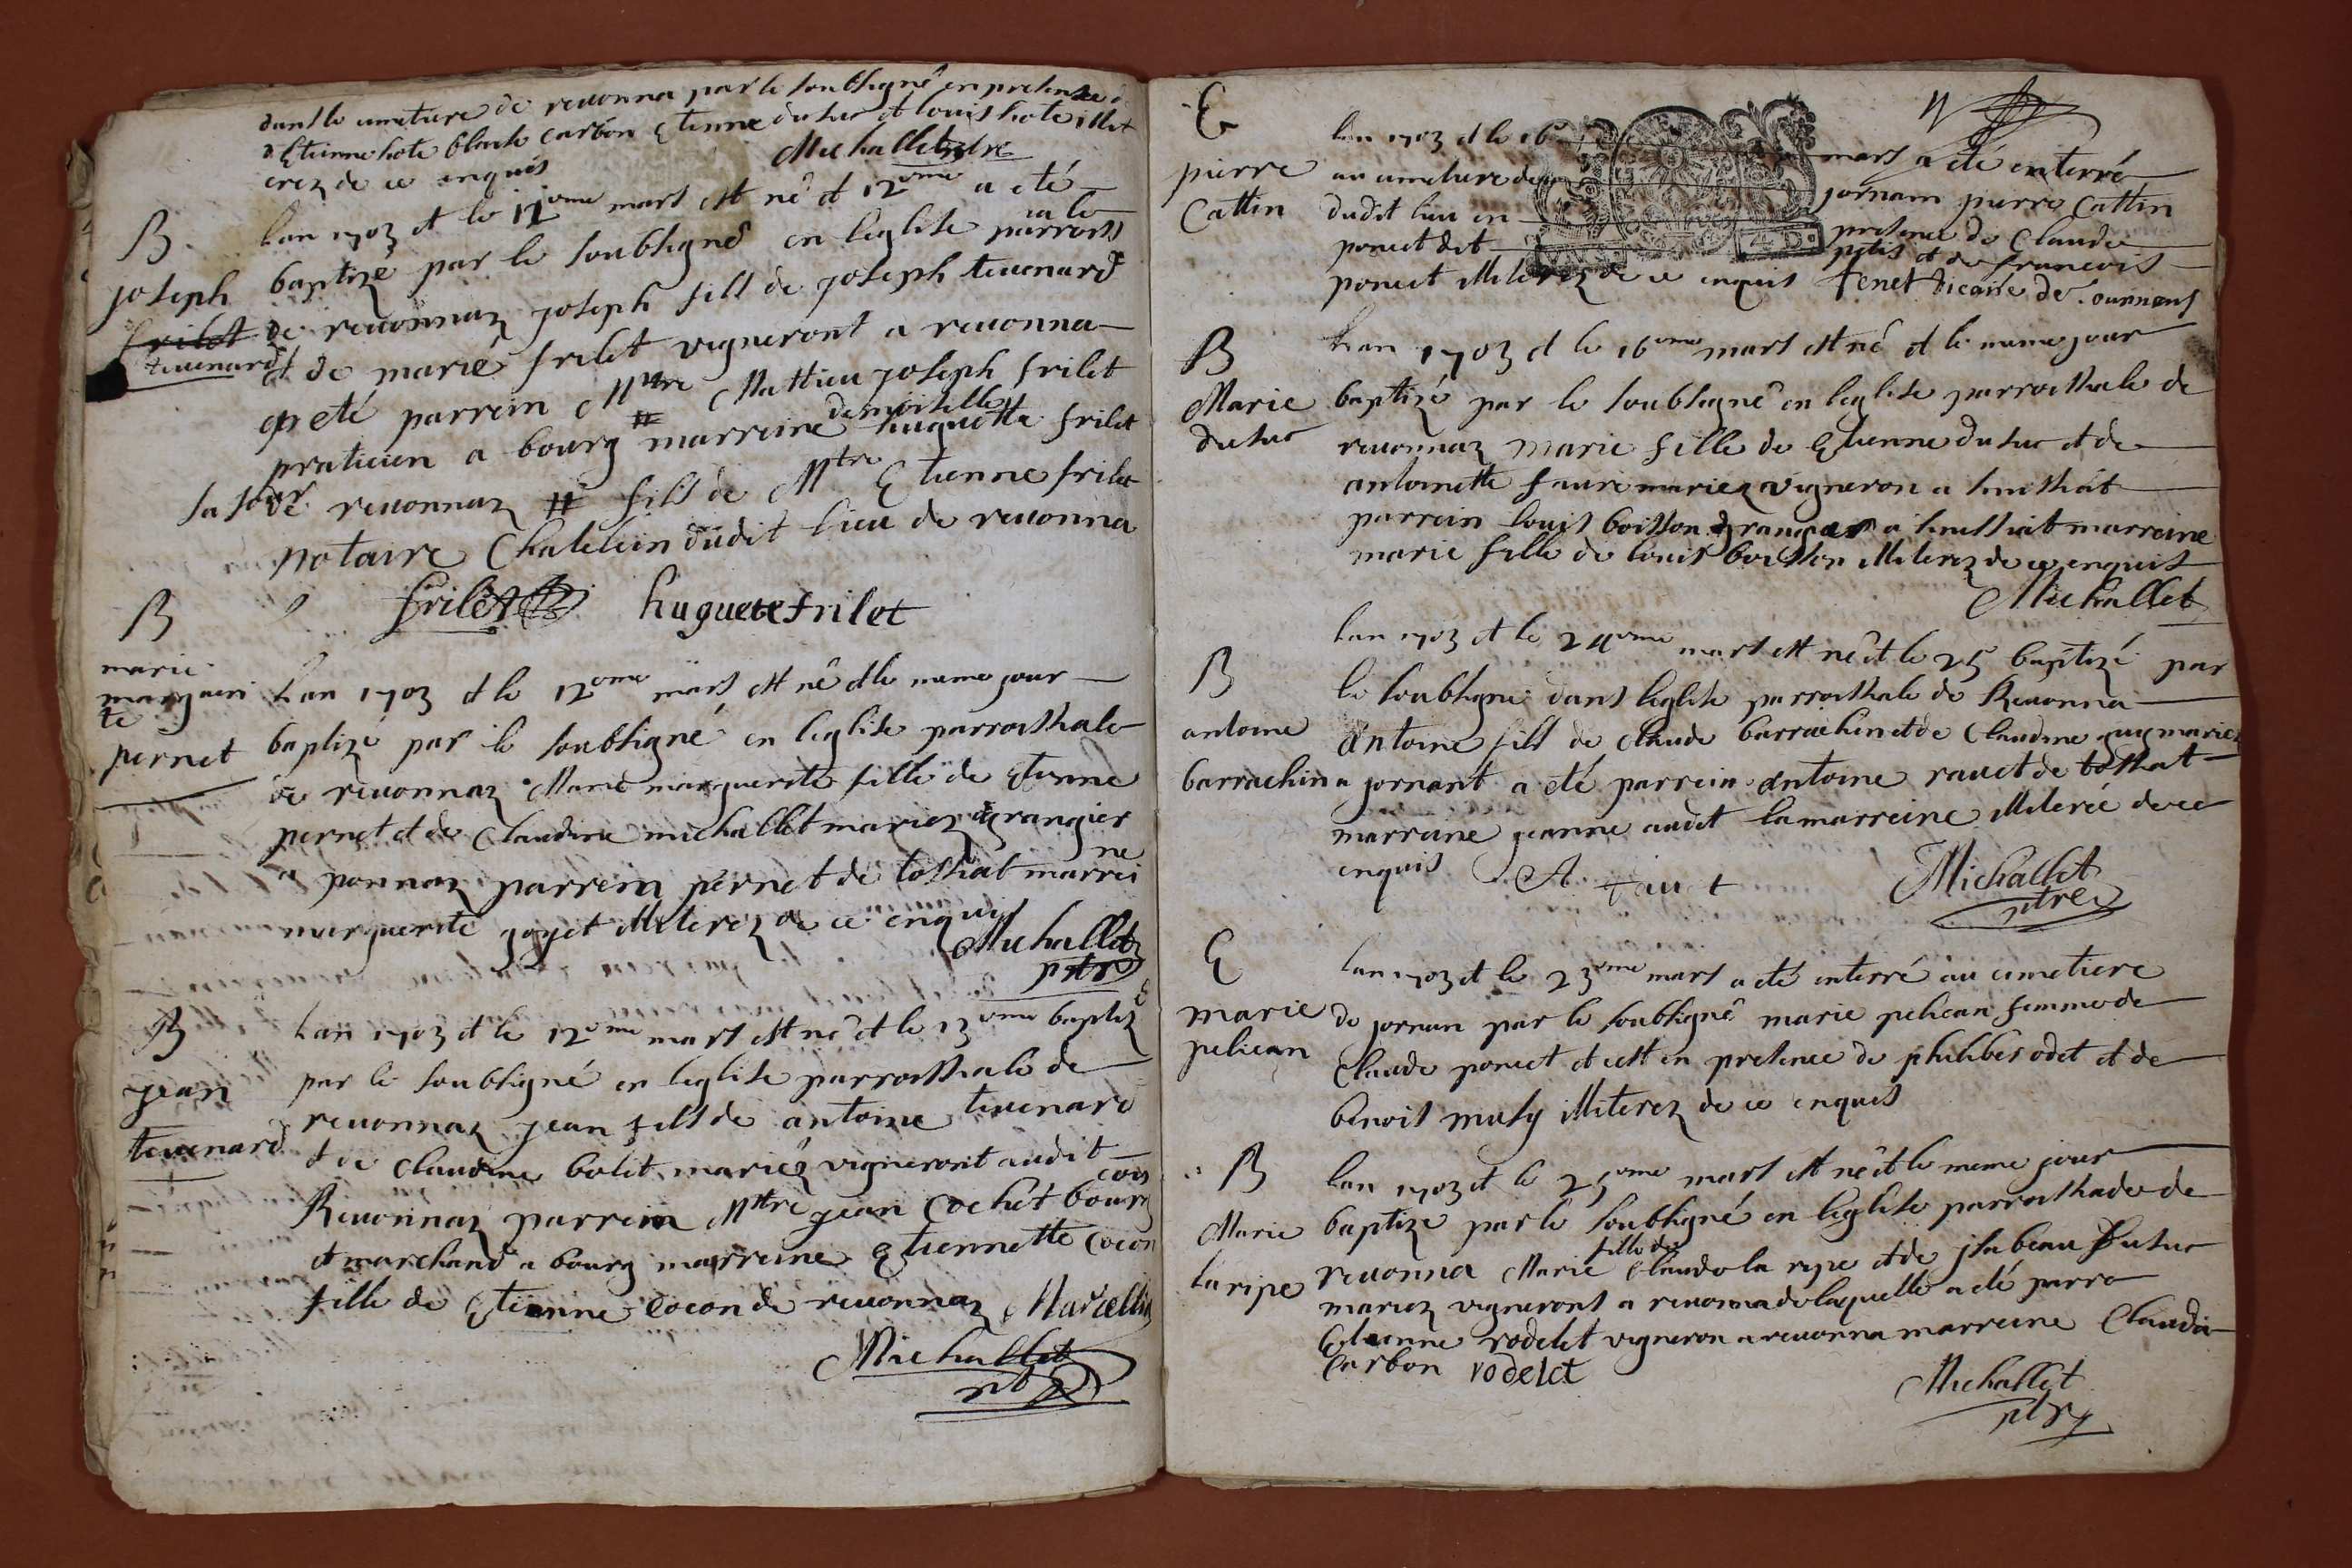 dans le cimetiere de reuonna par le soubsigné en presence
d Etienne hote blaile carbon Etienne dusuc et louis hote illit
erez de ce enquis
Michallet ptre
B
joseph
frilet
teuenard
lan 1703 et le 12eme mars est né et 12eme a eté
baptizé par le soubsigné en leglise parrois
iale
de reuonnaz joseph fils de joseph teuenard
et de marie frilet vigneront a reuonna
a eté parrein Mtre Mattieu joseph frilet
praticien a bourg # marreine demoiselle huguette frilet
sa soeur de reuonnaz # fils de Mtre Etienne frilet
notaire Chatelein dudit lieu de reuonna
frilet huguete frilet
B
marie
margueri
te
pernet
lan 1703 et le 12eme mars est né et le meme jour
baptizé par le soubsigné en leglise parroissiale
de reuonnaz Marie marguerite fille de Etienne
pernet et de Claudine michallet mariez grangier
a ponnaz parrein pernet de tossiat marrei
ne
marguerite goyet illiterez de ce enquis
Michallet
ptre
B
jean
teuenard
lan 1703 et le 12eme mars est né et le 13eme baptizé
par le soubsigné en leglise parroissiale de
reuonnaz jean fils de antoine teuenard
et de claudine bolit mariéz vigneront audit
Reuonnaz parrein Mtre jean Cochet bourg
eois
et marchand a bourg marreine Etiennette Cocon
fille de Etienne Cocon de reuonnaz Marcellin
Michallet
E
pierre
Cattin
lan 1703 et le 16 mars a été enterré
au cimetiere de jornam pierre Cattin
dudit lieu en presence de Claude
poncet dit petis et de francois
poncet illiterez de ce enquis tenet vicaire de journans
B
Marie
dusuc
lan 1703 et le 16eme mars est né et le meme jour
baptizé par le soubsigné en leglise parroissiale de
reuonnaz marie fille de Etienne dusuc et de
antoinette faure mariez vigneron a senissiat
parrein louis boisson grangier a senissiat marreine
marie fille de louis boisson illiterez de ce enquis
Michallet
B
antoine
barrachin
lan 1703 et le 24eme mars est né et le 25 baptizé par
le soubsigné dans leglise parroissiale de Reuonna
antoine fils de claude barrachin et de Claudine guy mariez
a jornant a eté parrein antoine rauet de tossiat
marreine jeanne audet la marreine illiterée de ce
enquis
A rauet
Michallet
ptre
E
marie
pelican
lan 1703 et le 23eme mars a eté enterré au cimetiere
de jornan par le soubsigné marie pelican femme de
Claude poncet et cest en presence de philibes odet et de
benois musy illiterez de ce enquis
B
Marie
laripe
lan 1703 et le 25eme mars est né et le meme jour
baptize par le soubsigné en leglise parroissiade de
reuonna Marie fille de Claude la ripe et de jsabeau Dusuc
mariez vignerons a reuonna de laquelle a eté parre
Etienne rodelet vigneron a reuonna marreine Claudia
Carbon rodelet
Michallet
ptre